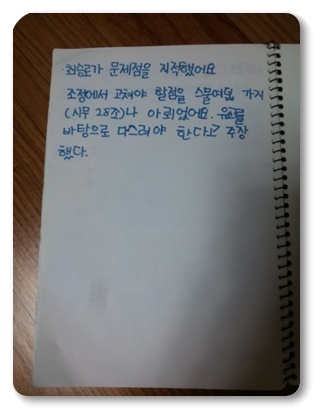 최승로가 문제점을 지적했어요
조정에서 고쳐야 할점을 스물여덟 가지
(시무 28조)나 아뢰었어요. 유교를
바탕으로 다스려야 한다고 주장
했다.